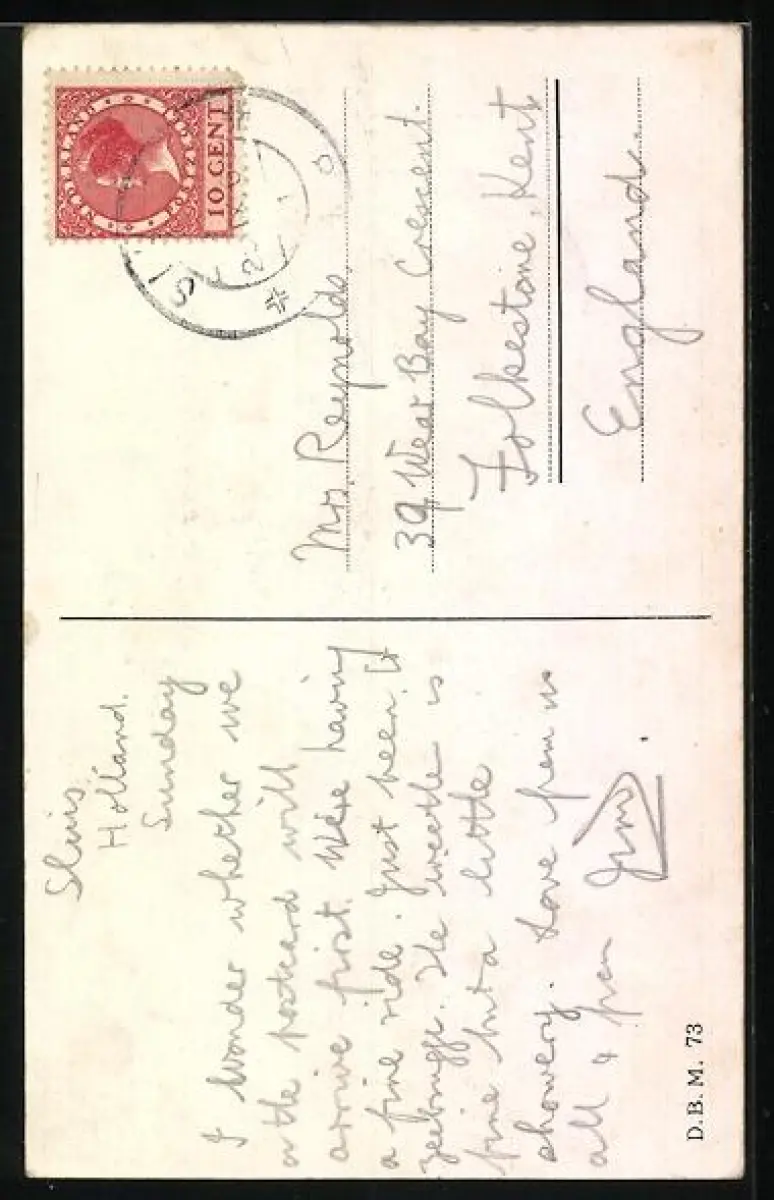 Sluis
Holland.
Sunday
I wonder whether we
or the postcard will
arrive first. Were having
a fine ride. Just been to
Zeebrugge. The weather is
fine but a little
showery. Love from us
all & from Jim.
D.B.M. 73
NEDERLAND
POSTZEGEL
10 CENT
SL
Mrs. Reynolds.
39 Wear Bay Crescent.
Folkestone, Kent
England